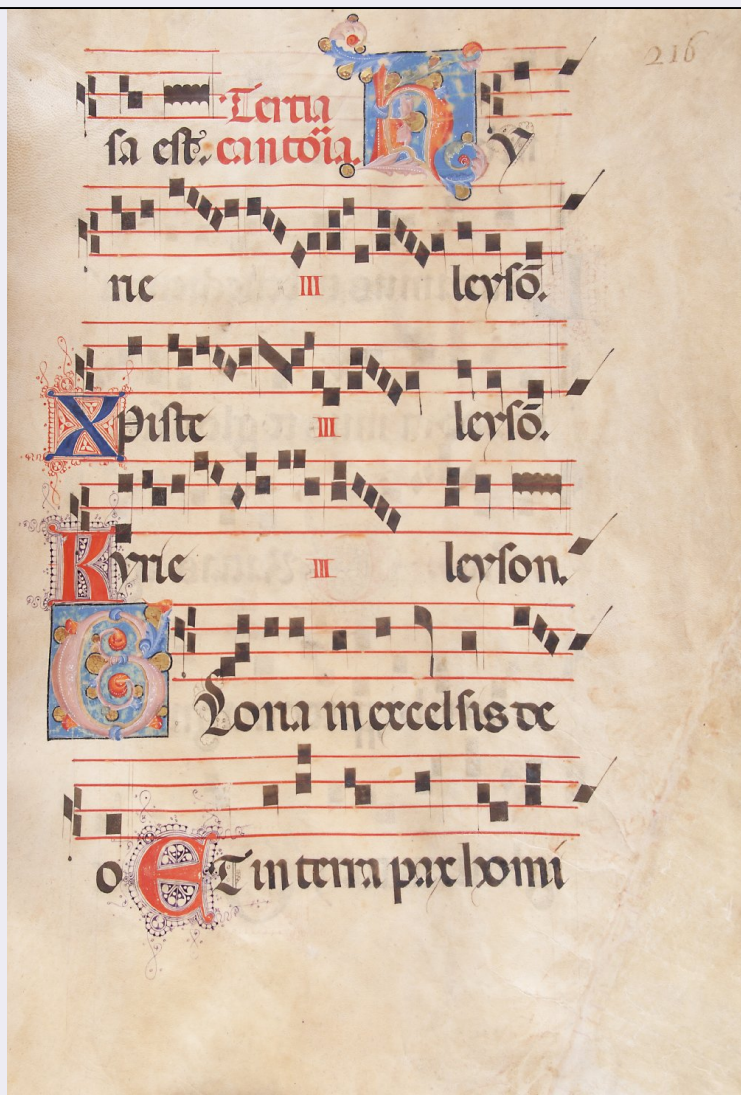 216
sa est. Tertia
cantoïa. K y
rie III leysō.
Xpiste III leysō.
Kyrie III leyson.
Gloria in excelsis de
o Et in terra pax homi